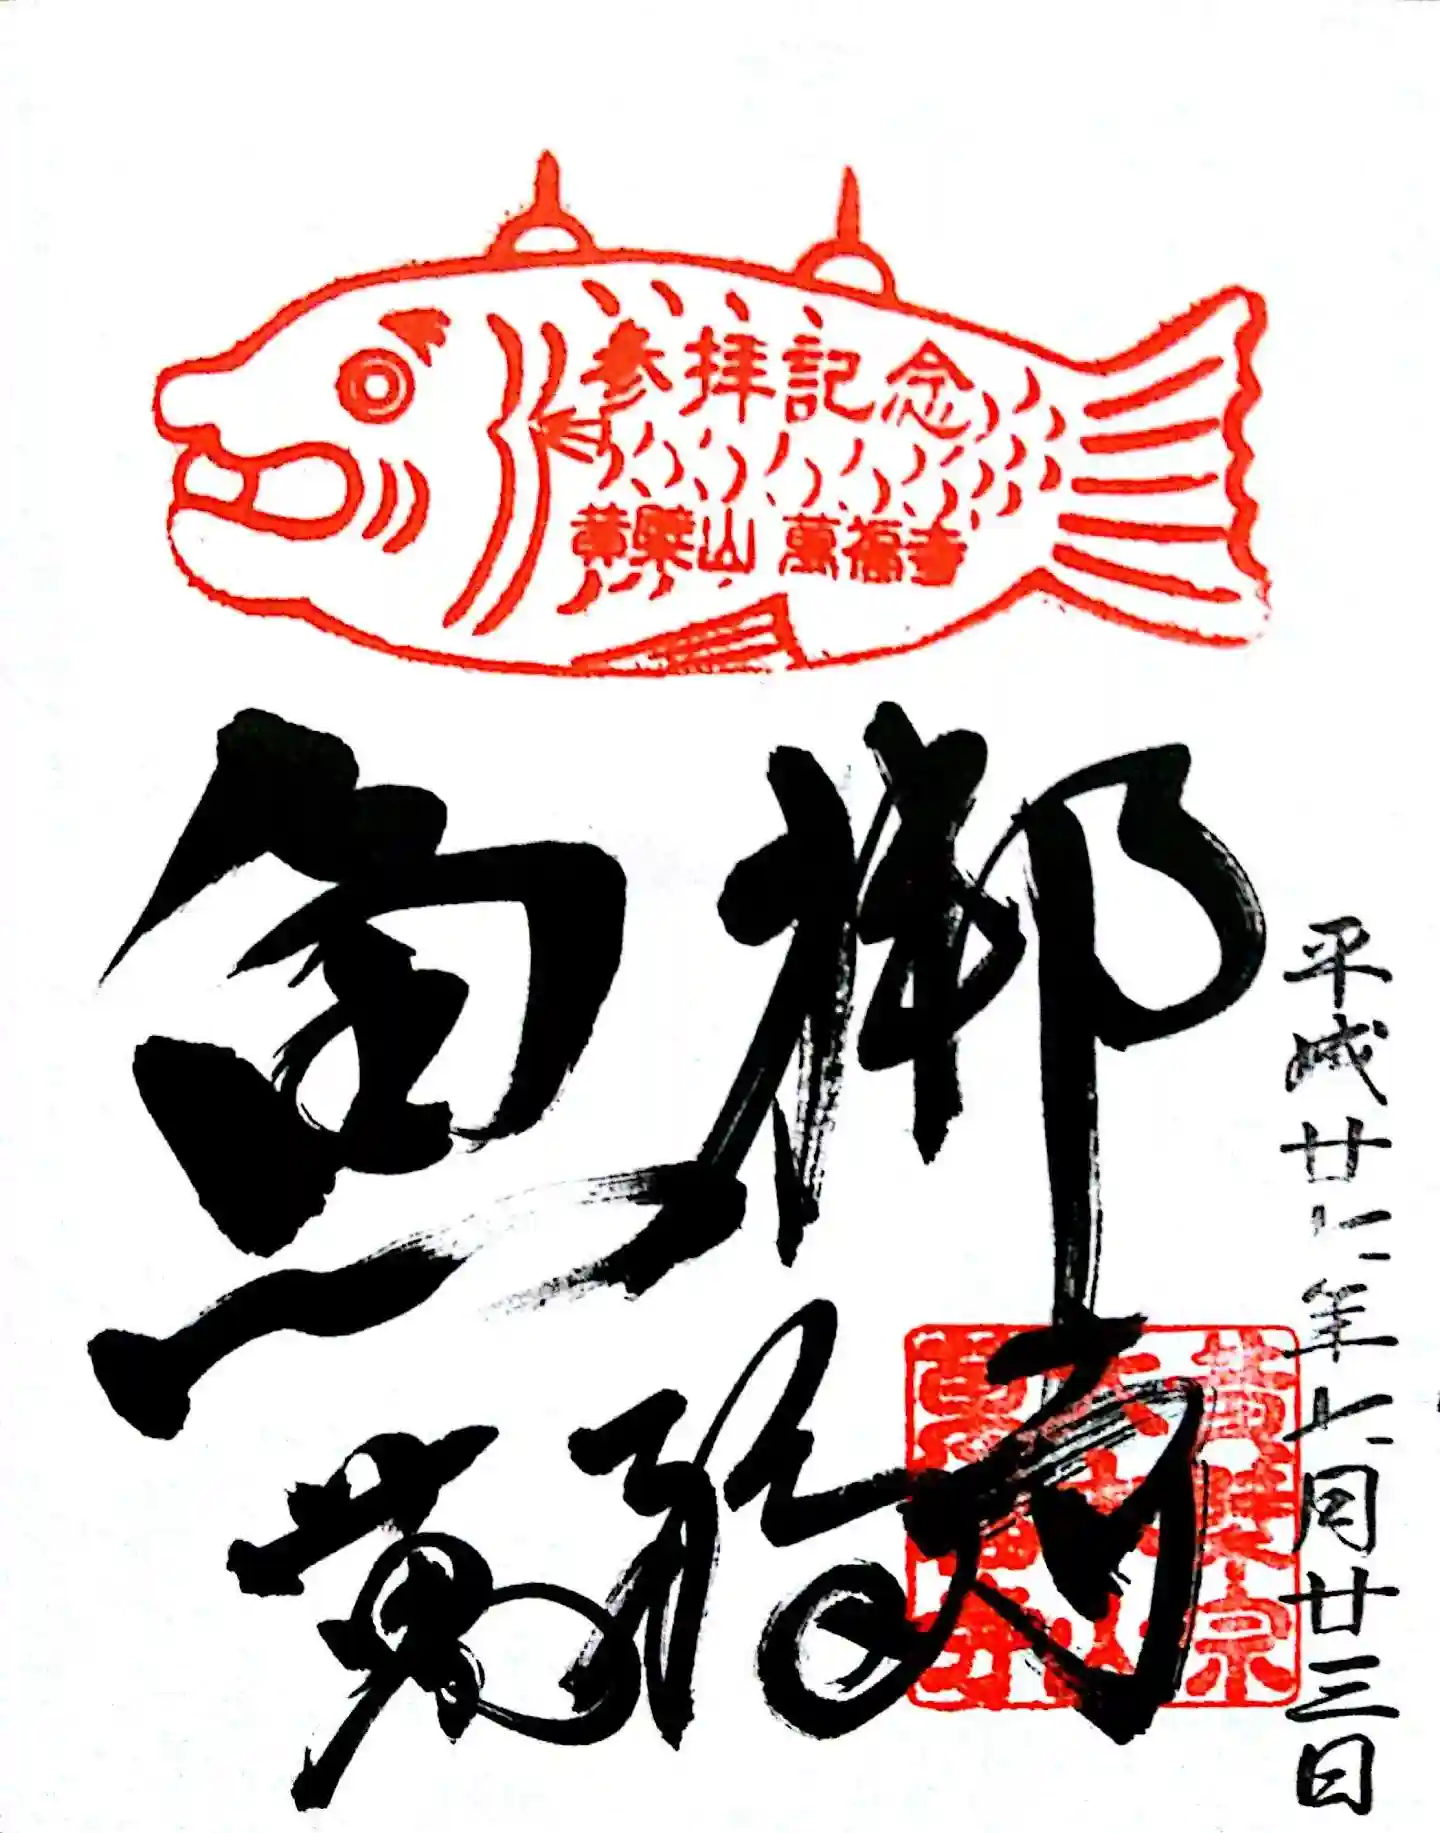 参拝記念
黄檗山 萬福寺
魚梆
萬福寺
平成廿七年七月廿三日
黄檗宗
大本山
萬福寺